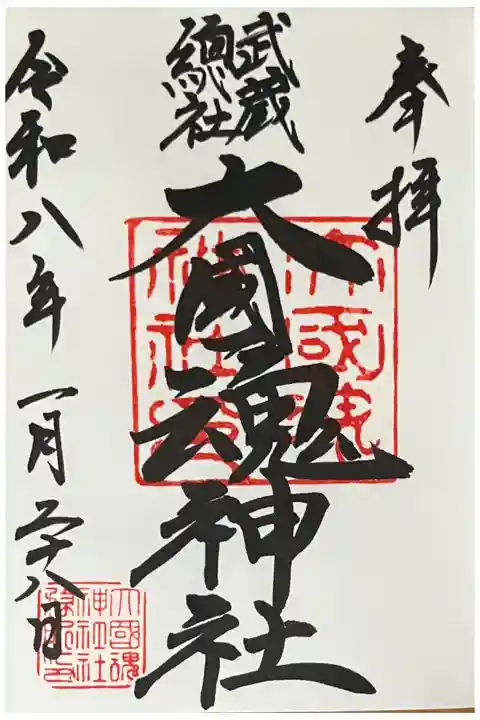 奉拝
武蔵
總社
大國魂神社
令和八年一月二十八日